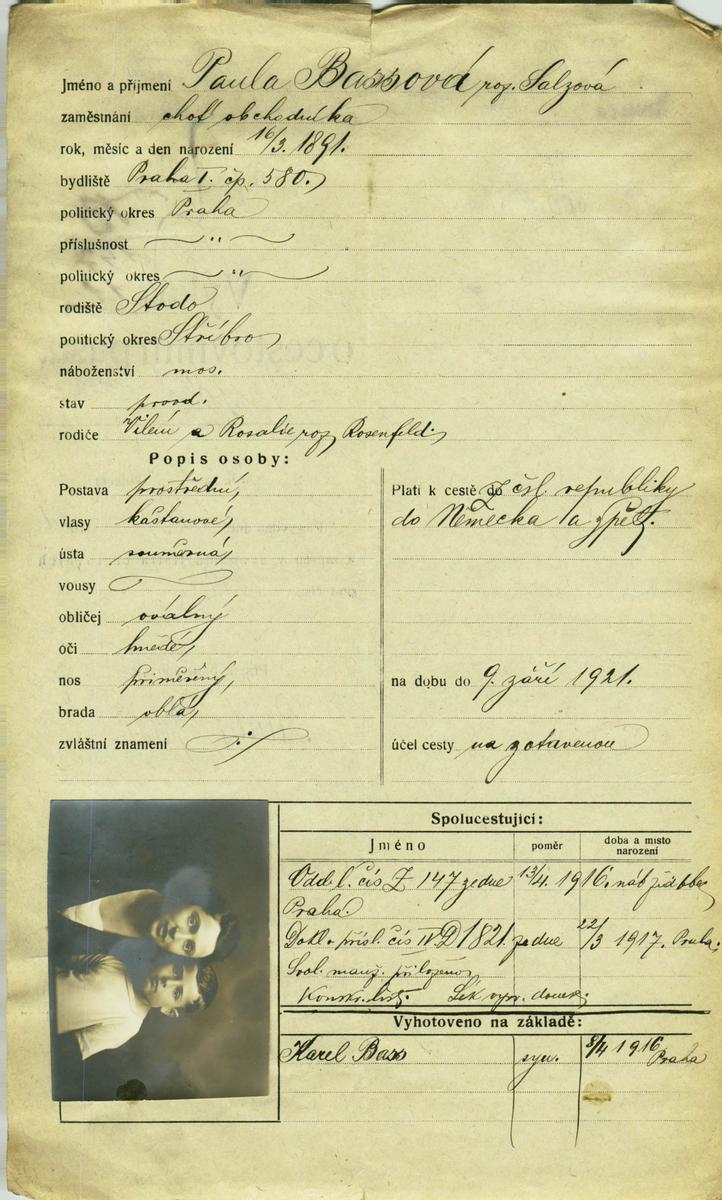 Jméno a příjmení Paula Bassová roz. Salzová
zaměstnání choť obchodníka
rok, měsíc a den narození 16/3. 1891.
bydliště Praha I. čp. 580.
politický okres Praha
příslušnost "
politický okres "
rodiště Stodo
politický okres Stříbro
náboženství mos.
stav provd.
rodiče Vilém a Rosalie roz. Rosenfeld
Popis osoby:
Postava prostřední,
vlasy kaštanové,
ústa souměrná,
vousy
obličej oválný
oči hnědé,
nos přiměřený,
brada oblá,
zvláštní znamení ./.
Platí k cestě do z čsl. republiky
do Německa a zpět.
na dobu do 9. září 1921.
účel cesty na zotavenou
Spolucestující:
Jméno poměr doba a místo narození
Odd. l. čís Z 147 ze dne 13/4. 1916. náb. žid. obec
Praha.
Dokl. přísl. čís IV D 1821 ze dne 22/3 1917. Praha.
Svol. manž. přiloženo
Konskr. list.
Vyhotoveno na základě:
Karel Bass syn. 8/4 1916 Praha